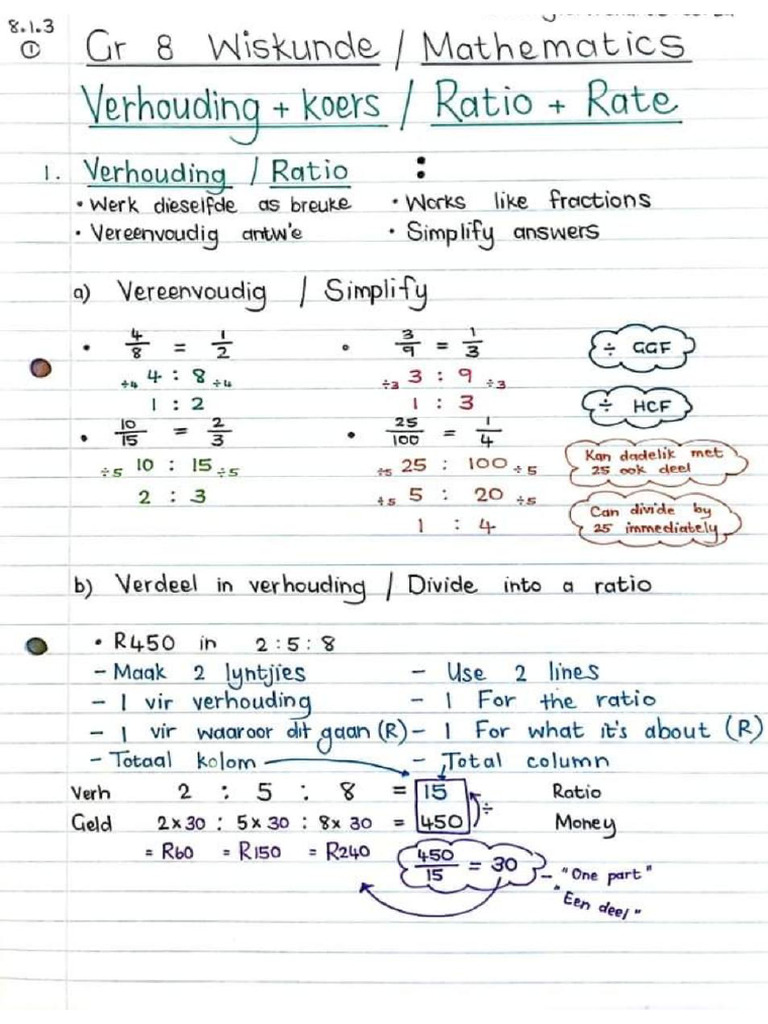 8.1.3
①
Gr 8 Wiskunde / Mathematics
Verhouding + koers / Ratio + Rate
1. Verhouding / Ratio :
• Werk dieselfde as breuke • Works like fractions
• Vereenvoudig antw'e • Simplify answers
a) Vereenvoudig / Simplify
• 4/8 = 1/2 • 3/9 = 1/3 ÷ GGF
÷4 4 : 8 ÷4 ÷3 3 : 9 ÷3
1 : 2 1 : 3 ÷ HCF
• 10/15 = 2/3 • 25/100 = 1/4
÷5 10 : 15 ÷5 ÷5 25 : 100 ÷5 Kan dadelik met
25 ook deel
2 : 3 ÷5 5 : 20 ÷5 Can divide by
1 : 4 25 immediately
b) Verdeel in verhouding / Divide into a ratio
• R450 in 2:5:8
- Maak 2 lyntjies - Use 2 lines
- 1 vir verhouding - 1 For the ratio
- 1 vir waaroor dit gaan (R) - 1 For what it's about (R)
- Totaal kolom - Total column
Verh 2 : 5 : 8 = 15 Ratio
Geld 2x30 : 5x30 : 8x30 = 450 ÷ Money
= R60 = R150 = R240 450/15 = 30 - "One part"
"Een deel"